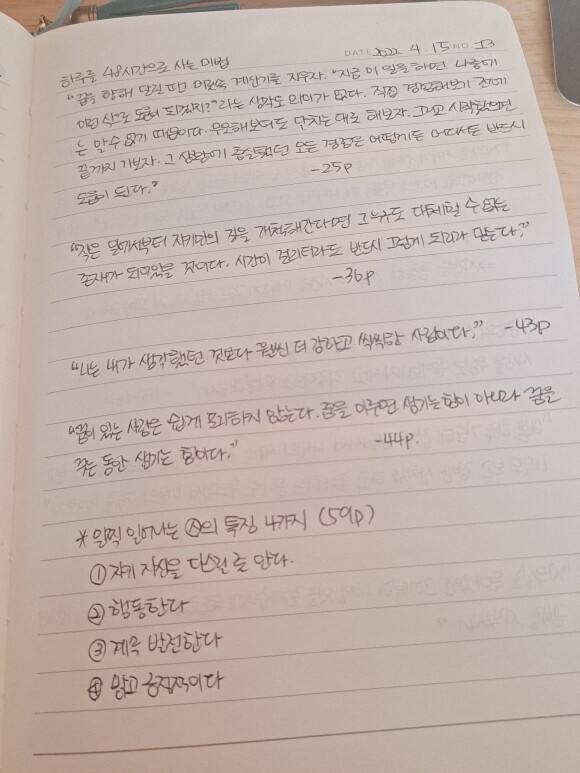 DATE 2022. 4. 15 NO. 13
하루를 48시간으로 사는 마법
"꿈을 향해 달릴 땐 머릿속 계산기를 치우자. "지금 이 일을 하면 나중에
이런 식으로 도움이 되겠지?"라는 생각도 의미가 없다. 직접 경험해보기 전에
는 알 수 없기 때문이다. 무모해보여도 닥치는 대로 해보자. 그리고 시작했으면
끝까지 가보자. 그 생활에 충실했던 모든 경험은 어떻게든 어디서든 반드시
도움이 된다."
-25p
"작은 일에서부터 자기만의 길을 개척해간다면 그 누구도 대체할 수 없는
존재가 되어있을 것이다. 시간이 걸리더라도 반드시 그렇게 되리라 믿는다."
-36p
"나는 내가 생각했던 것보다 훨씬 더 강하고 씩씩한 사람이다." -43p
"꿈이 있는 사람은 쉽게 포기하지 않는다. 꿈을 이루면 생기는 힘이 아니라 꿈을
꾸는 동안 생기는 힘이다."
-44p.
* 일찍 일어나는 의 특징 4가지 (59p)
① 자기 자신을 다스릴 줄 안다.
② 행동한다
③ 계속 발전한다
④ 밝고 긍정적이다